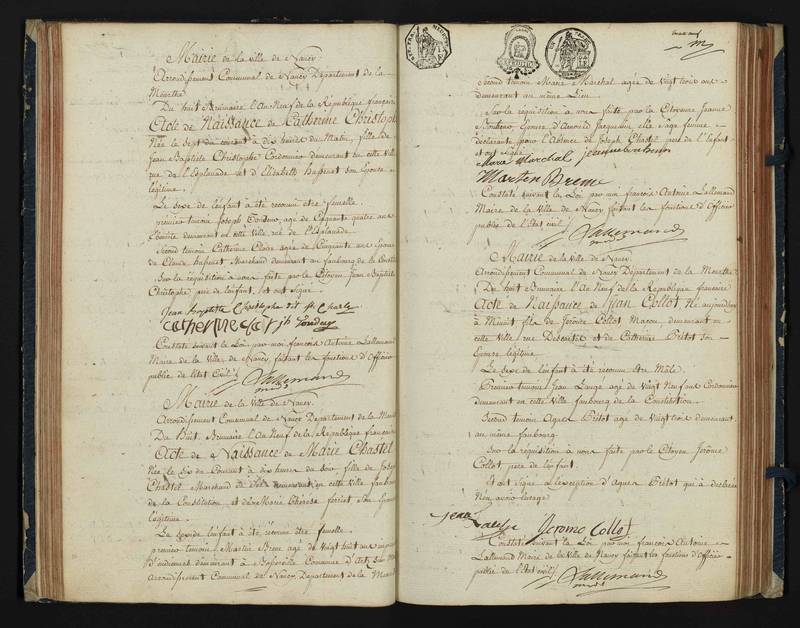 Mairie de la ville de Nancy
Arrondissement Communal de Nancy Département de la
Meurthe
Du huit Brumaire l'An Neuf de la République française
Acte de Naissance de Catherine Christophe
Née le sept du courant à dix heures du Matin, fille de
jean Baptiste Christophe Cordonnier demeurant en cette ville
rue de l'Esplanade et d'Elisabeth Husson son Epouse
légitime
Le sexe de l'enfant à été reconnu être femelle
premier temoin Joseph agé de Cinquante quatre ans
demeurant en cette Ville, rue de l'Esplanade
Second temoin Catherine Claire agée de Cinquante ans Epouse
de Claude Marchand demeurant au faubourg de la
Sur la réquisition à nous faite par le Citoyen Jean Baptiste
Christophe père de l'enfant, et ont signé
jean baptiste Christophe dit st Charle
catherine
Constaté suivant la Loi, par moi françois Antoine Lallemand
Maire de la Ville de Nancy, faisant les fonctions d'Officier
public de l'état Civil
Lallemand
Mairie de la Ville de Nancy
Arrondissement Communal de Nancy Département de la Meurthe
Du Huit Brumaire l'An Neuf de la République française
Acte de Naissance de Marie Chastel
Née le Six du Courant à dix heures du Soir, fille de Joseph
Chastel Marchand de demeurant en cette Ville faubourg
de la Constitution et de Marie Thérèse ferriet Son Epouse
légitime
Le sexe de l'enfant à été reconnu être femelle
premier temoin Martin Breme agé de Vingt huit ans
demeurant à Commune d'
Arrondissement Communal de Nancy Département de la Meurthe
Second temoin Marie Marchal agée de Vingt trois ans
demeurant au même Lieu
Sur la réquisition à nous faite par la Citoyenne Jeanne
Epouse d'Arnould Jacquemin, elle Sage femme
déclarante, pour l'Absence de Joseph Chastel père de l'enfant
et ont signé
Marie Marchal
Martin Breme
Constaté suivant la Loi par moi françois Antoine Lallemand
Maire de la Ville de Nancy faisant les fonctions d'Officier
public de l'Etat civil
Lallemand
Mairie de la Ville de Nancy
Arrondissement Communal de Nancy Département de la Meurthe
Du huit Brumaire l'An Neuf de la République francaise
Acte de Naissance de Jean Collot Né aujourdhuy
à Minuit fils de Jérôme Collot Maçon, demeurant en
cette Ville rue Descartes et de Catherine Pretot Son
Epouse légitime
Le Sexe de l'enfant à été reconnu être Mâle
Premier temoin Jean Lange agé de Vingt Neuf ans Cordonnier
demeurant en cette Ville faubourg de la Constitution
Second temoin Agnes Pretot agée de Vingt trois demeurant
au même faubourg
Sur la requisition à nous faite par le Citoyen Jérôme
Collot, père de l'enfant
Et ont Signé à l'exception d'Agnes Pretot qui à déclaré
N'en avoir l'usage
jean Jerome Collot
Constaté suivant la Loi par moi françois Antoine
Lallemand Maire de la Ville de Nancy faisant les fonctions d'Officier
public de l'Etat civil
Lallemand